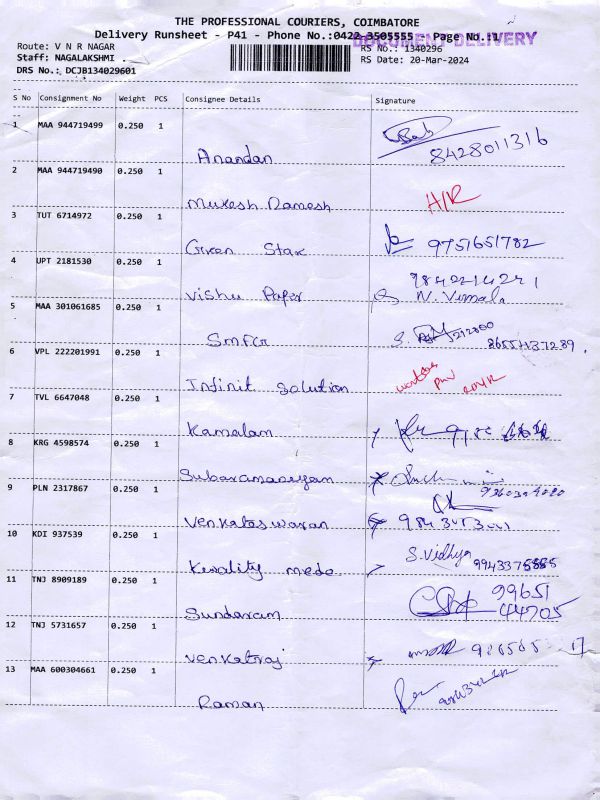 THE PROFESSIONAL COURIERS, COIMBATORE
Delivery Runsheet - P41 - Phone No.:0422-3505555 Page No.:1/
DOCUMENT DELIVERY
Route: V N R NAGAR
RS No.: 1340296
Staff: NAGALAKSHMI .
RS Date: 20-Mar-2024
DRS No.: DCJB134029601
S No Consignment No Weight PCS Consignee Details Signature
1 MAA 944719499 0.250 1
Anandan 8428011316
2 MAA 944719490 0.250 1
Mukesh Ramesh
3 TUT 6714972 0.250 1
Green Star 9751651782
4 UPT 2181530 0.250 1
Vishu Paper N. Vimala
5 MAA 301061685 0.250 1
SMFG 8655437289
6 VPL 222201991 0.250 1
Infinit Solution
7 TVL 6647048 0.250 1
Kamalam
8 KRG 4598574 0.250 1
Subaramaniyam
9 PLN 2317867 0.250 1
Venkateswaran
10 KDI 937539 0.250 1
Kwality meds S. Vidhya
11 TNJ 8909189 0.250 1
Sundaram 99651
44705
12 TNJ 5731657 0.250 1
Venkatraj
13 MAA 600304661 0.250 1
Raman